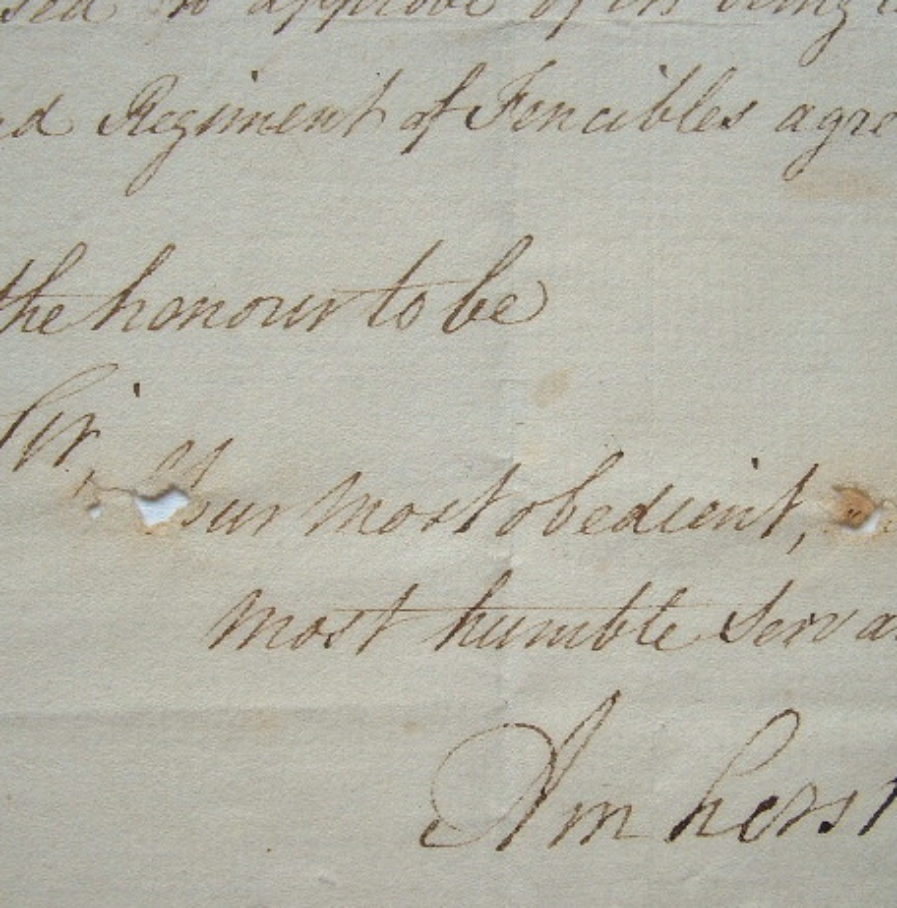 sed to approve of its being
ed Regiment of Fencibles agre
the honour to be
Sir,
Your most obedient,
most humble Serva
Amherst